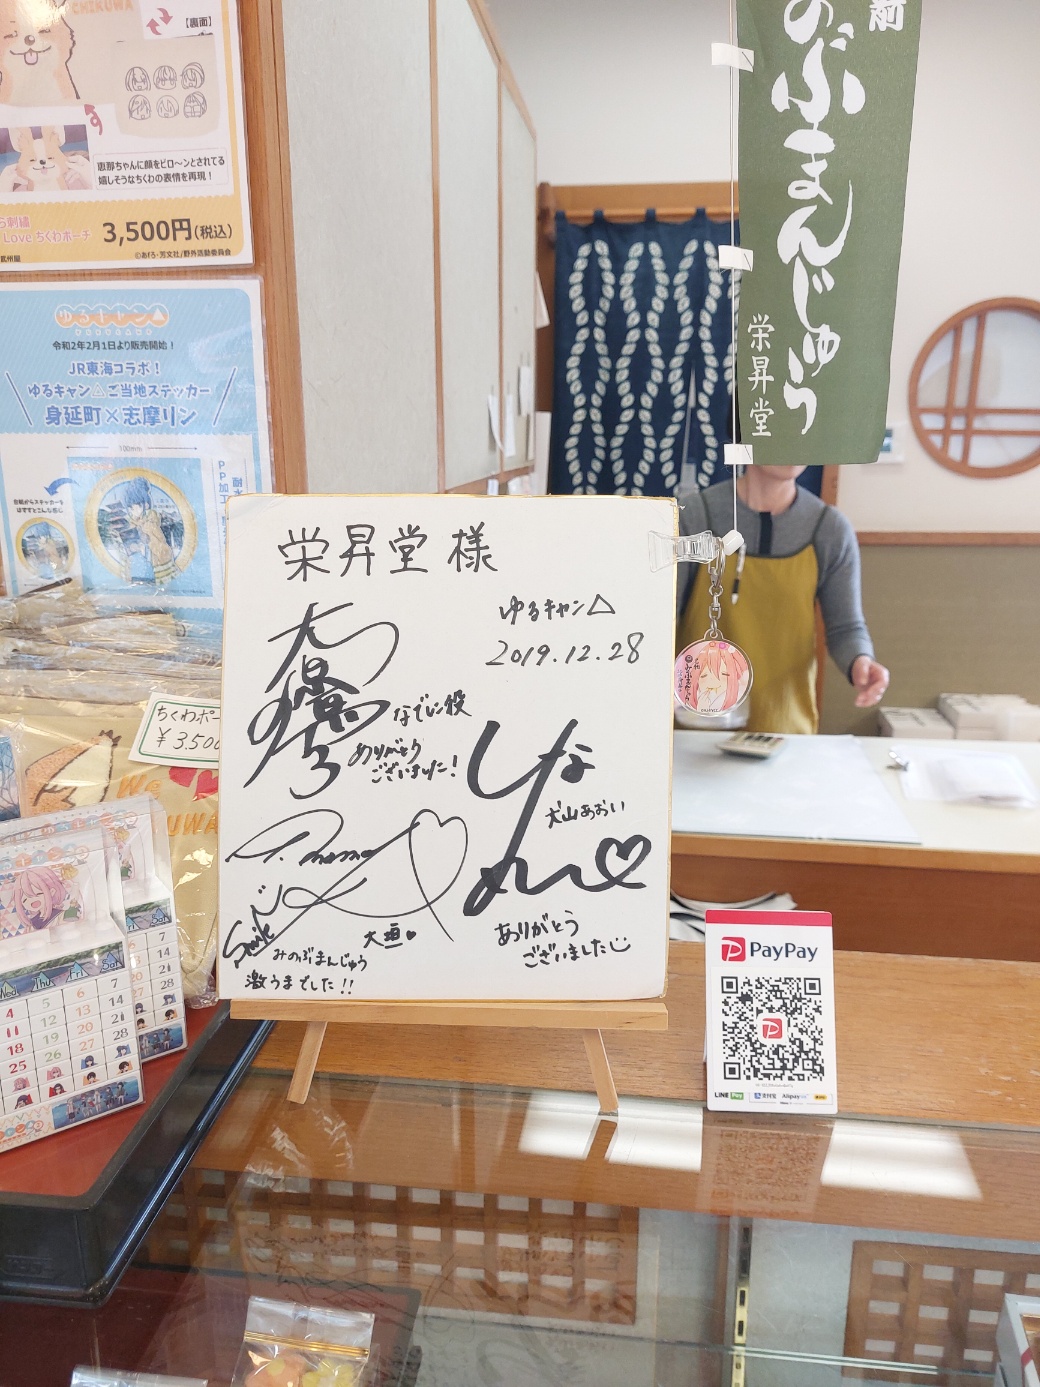 CHIKUWA
【裏面】
恵那ちゃんに顔をビロ〜ンとされてる
嬉しそうなちくわの表情を再現!
ら刺繍
Love ちくわポーチ
3,500円(税込)
©あfろ・芳文社/野外活動委員会
ゆるキャン△
令和2年2月1日より販売開始!
JR東海コラボ!
ゆるキャン△ご当地ステッカー
身延町×志摩リン
100mm
PP加工
ちくわポー
¥3,500
We
UWA
Wed Thu Fri Sat
4 5 6 7
11 12 13 14
18 19 20 21
25 26 27 28
Sat
7
14
21
28
のぶまんじゅう
栄昇堂
栄昇堂様
ゆるキャン△
2019.12.28
なでしこ役
ありがとう
ございました!
犬山あおい
ありがとう
ございました
Smile
大垣
みのぶまんじゅう
激うまでした!!
みのぶまんじゅう
PayPay
LINE Pay
支付宝 Alipay